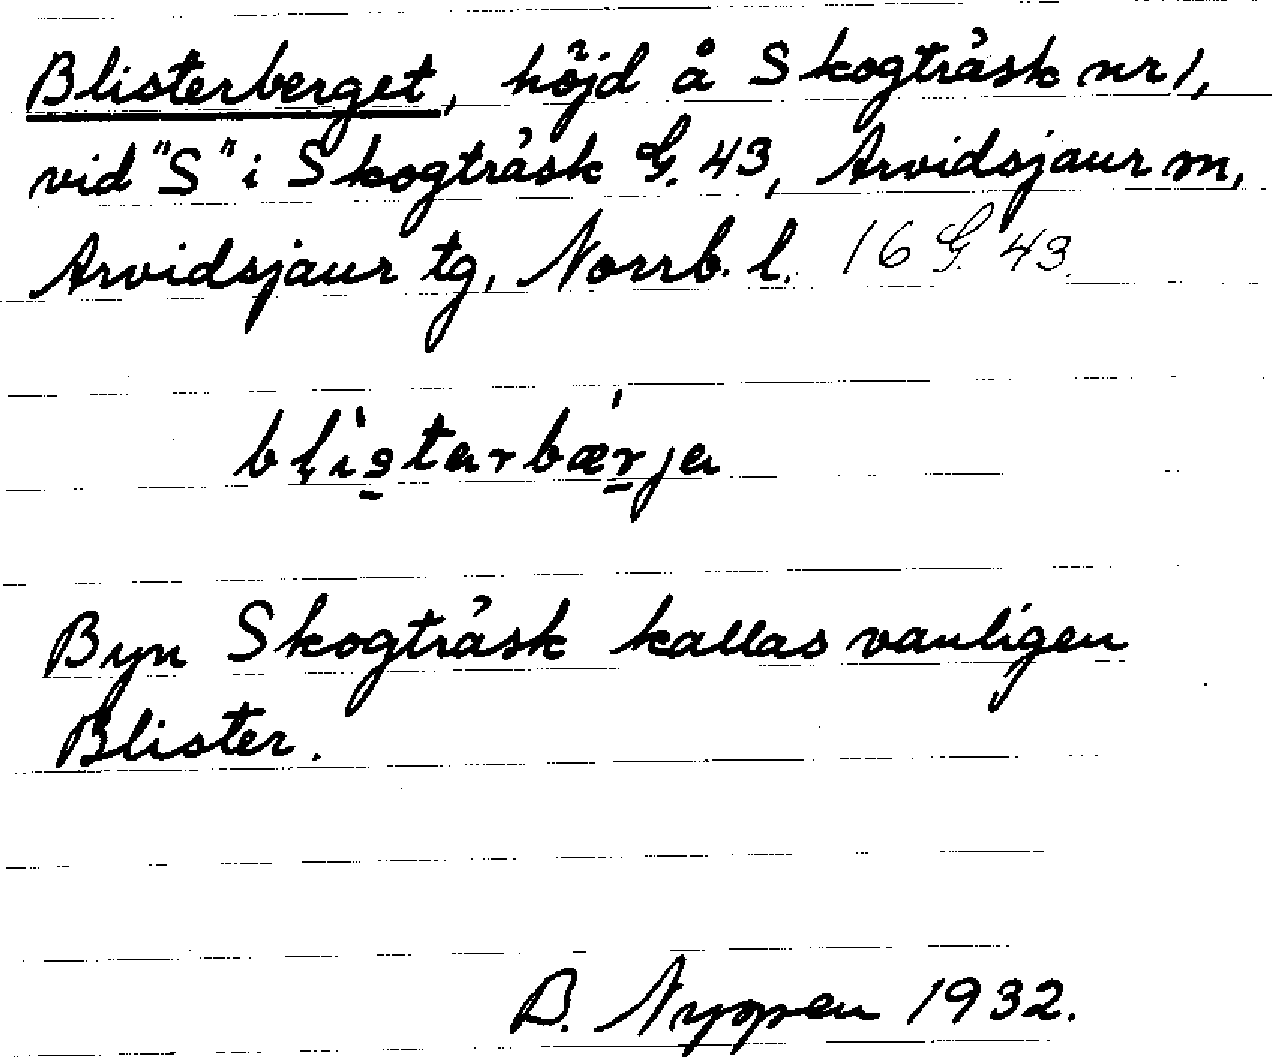 Blisterberget, höjd å Skogträsk nr 1,
vid "S" i Skogträsk G. 43, Arvidsjaur m,
Arvidsjaur tg, Norrb. l. 16 G. 43.
blìstarbǽrja
Byn Skogträsk kallas vanligen
Blister.
B. Nyppen 1932.